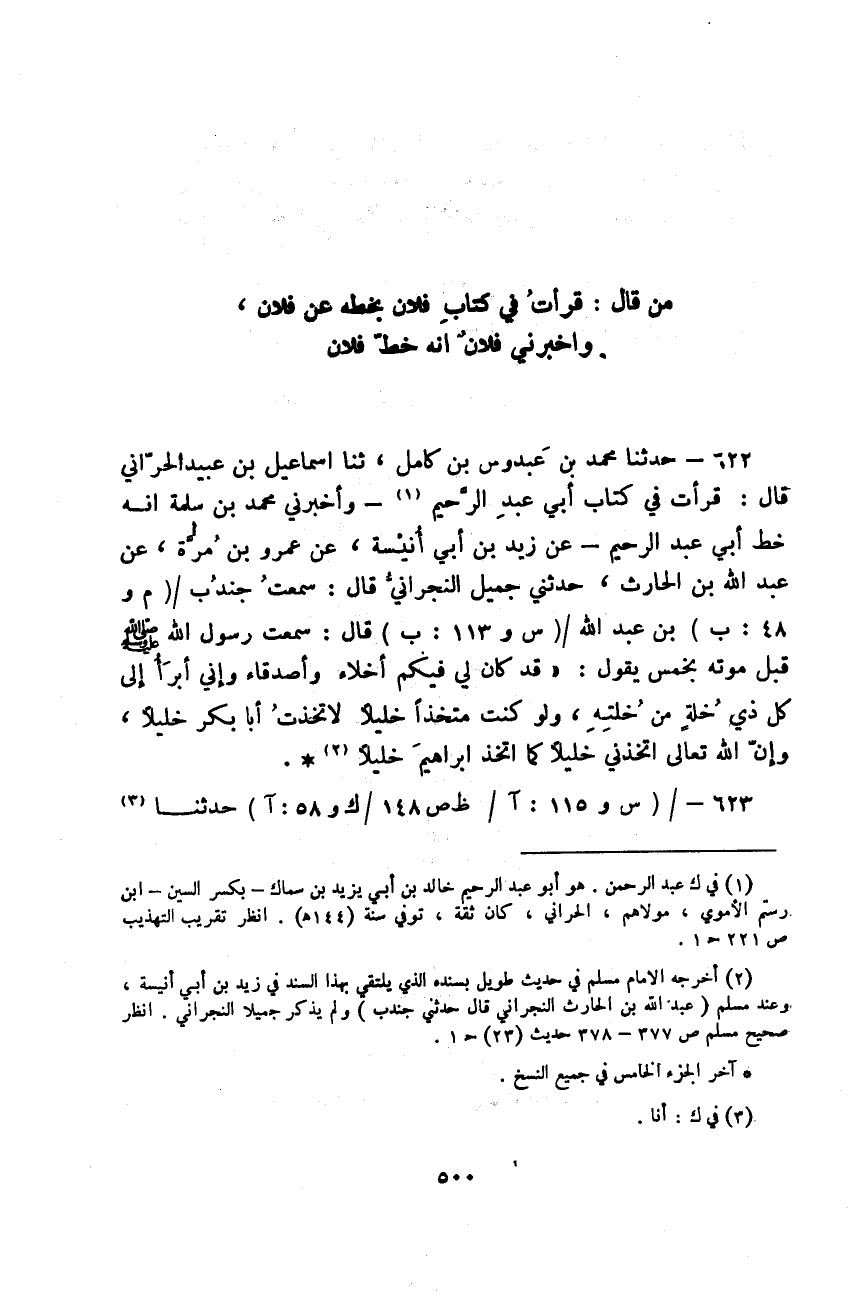 من قال : قرأتُ في كتابِ فلان بخطه عن فلان ،
واخبرني فلانٌ انه خطّ فلان .
٦٢٢ – حدثنا محمد بن عَبدوس بن كامل ، ثنا اسماعيل بن عبيدالحرّاني
قال : قرأت في كتاب أبي عبدِ الرَّحيم (١) – وأخبرني محمد بن سلمة انــه
خط أبي عبد الرحيم – عن زيد بن أبي أُنيْسة ، عن عمرو بن مُرَّة ، عن
عبد الله بن الحارث ، حدثني جميل النجرانيُّ قال : سمعتُ جندُب /( م و
٤٨ : ب ) بن عبد الله /( س و ١١٣ : ب ) قال : سمعت رسول الله ﷺ
قبل موته بخمس يقول : « قد كان لي فيكم أخلاء وأصدقاء وإني أبرَأُ إلى
كل ذي خُلةٍ من خُلتِهِ ، ولو كنت متخذاً خليلاً لاتخذتُ أبا بكر خليلاً ،
وإنّ الله تعالى اتخذني خليلاً كما اتخذ ابراهيمَ خليلاً (٢) * .
٦٢٣ – /( س و ١١٥ : آ / ظ ص ١٤٨ /ك و ٥٨ : آ ) حدثنــــا (٣)
(١) في ك عبد الرحمن . هو أبو عبد الرحيم خالد بن أبي يزيد بن سماك – بكسر السين – ابن
رستم الأموي ، مولاهم ، الحراني ، كان ثقة ، توفي سنة (١٤٤ه) . انظر تقريب التهذيب
ص ٢٢١ ح ١ .
(٢) أخرجه الامام مسلم في حديث طويل بسنده الذي يلتقي بهذا السند في زيد بن أبي أنيسة ،
وعند مسلم ( عبد الله بن الحارث النجراني قال حدثني جندب ) ولم يذكر جميلا النجراني . انظر
صحيح مسلم ص ٣٧٧ – ٣٧٨ حديث (٢٣) ح ١ .
* آخر الجزء الخامس في جميع النسخ .
(٣) في ك : أنا .
٥٠٠